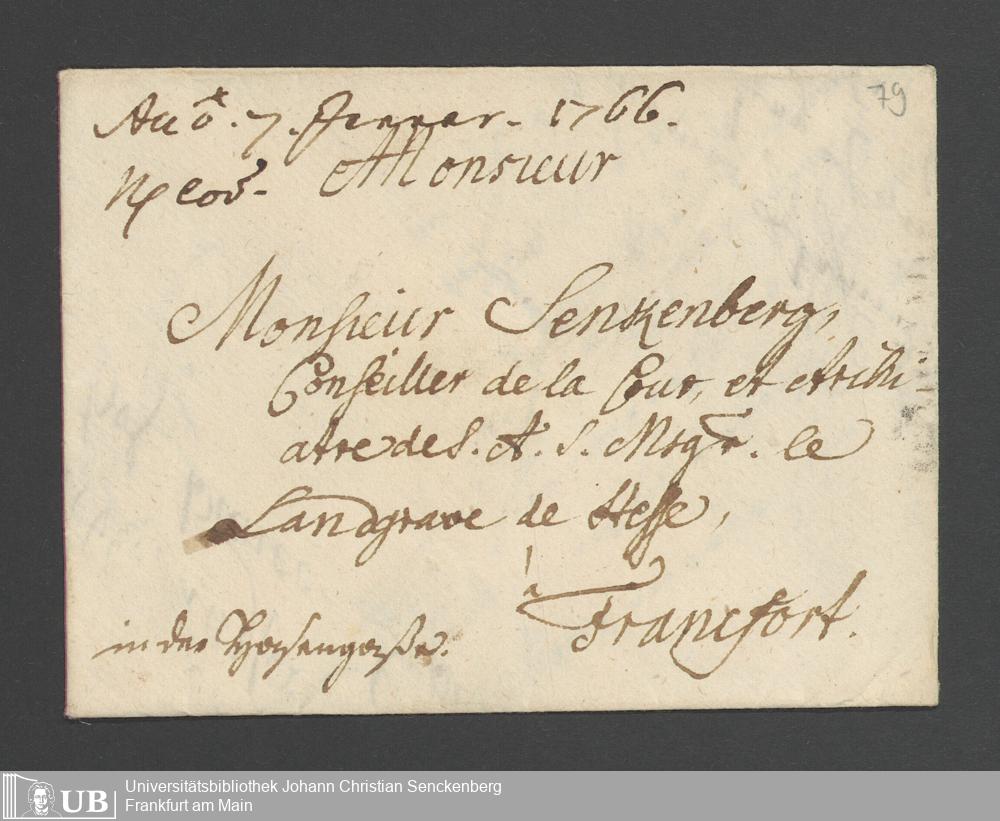 79
7. Jenner. 1766.
Monsieur
Monsieur Senkenberg,
Conseiller de la Cour, et Archi
atre de S. A. S. Msgr. le
Landgrave de Hesse,
à
Francfort.
in der Hasengaße.
UB
Universitätsbibliothek Johann Christian Senckenberg
Frankfurt am Main